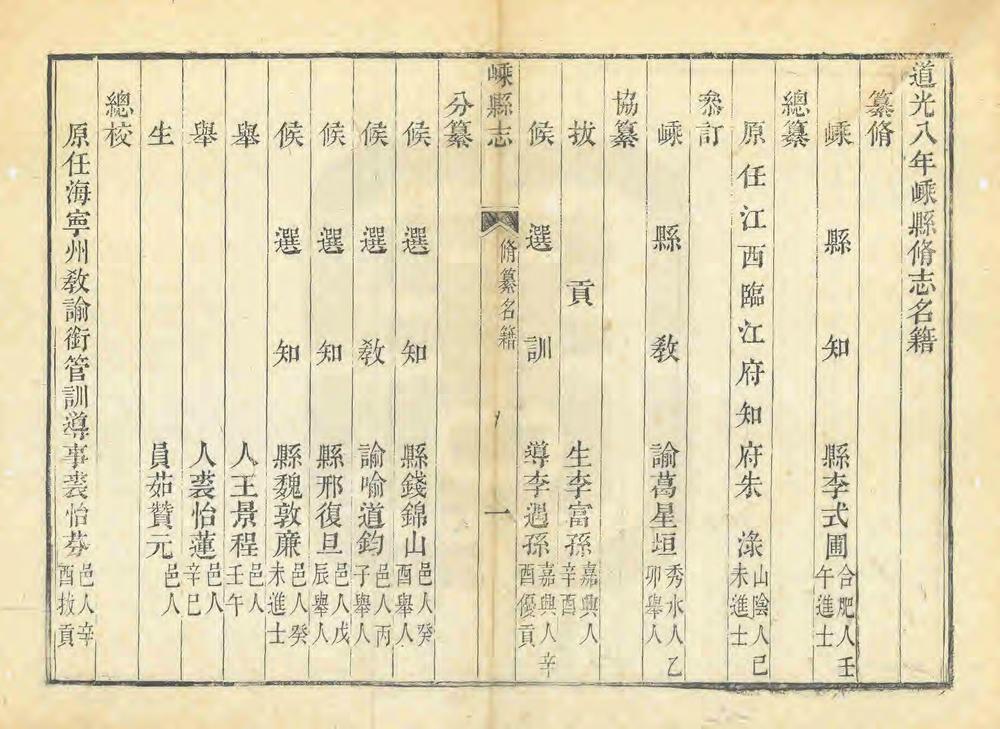 道光八年嵊縣脩志名籍
纂脩
嵊縣知縣李式圃合肥人壬午進士
總纂
原任江西臨江府知府朱淥山陰人己未進士
叅訂
嵊縣教諭葛星垣秀水人乙卯舉人
協纂
拔貢生李富孫嘉興人辛酉
候選訓導李遇孫嘉興人辛酉優貢
嵊縣志
脩纂名籍
一
分纂
候選知縣錢錦山邑人癸酉舉人
候選教諭喻道鈞邑人丙子舉人
候選知縣邢復旦邑人戊辰舉人
候選知縣魏敦廉邑人癸未進士
舉人王景程邑人壬午
舉人裘怡蓮邑人辛巳
生員茹贊元邑人
總校
原任海寧州教諭銜管訓導事裘怡芬邑人辛酉拔貢